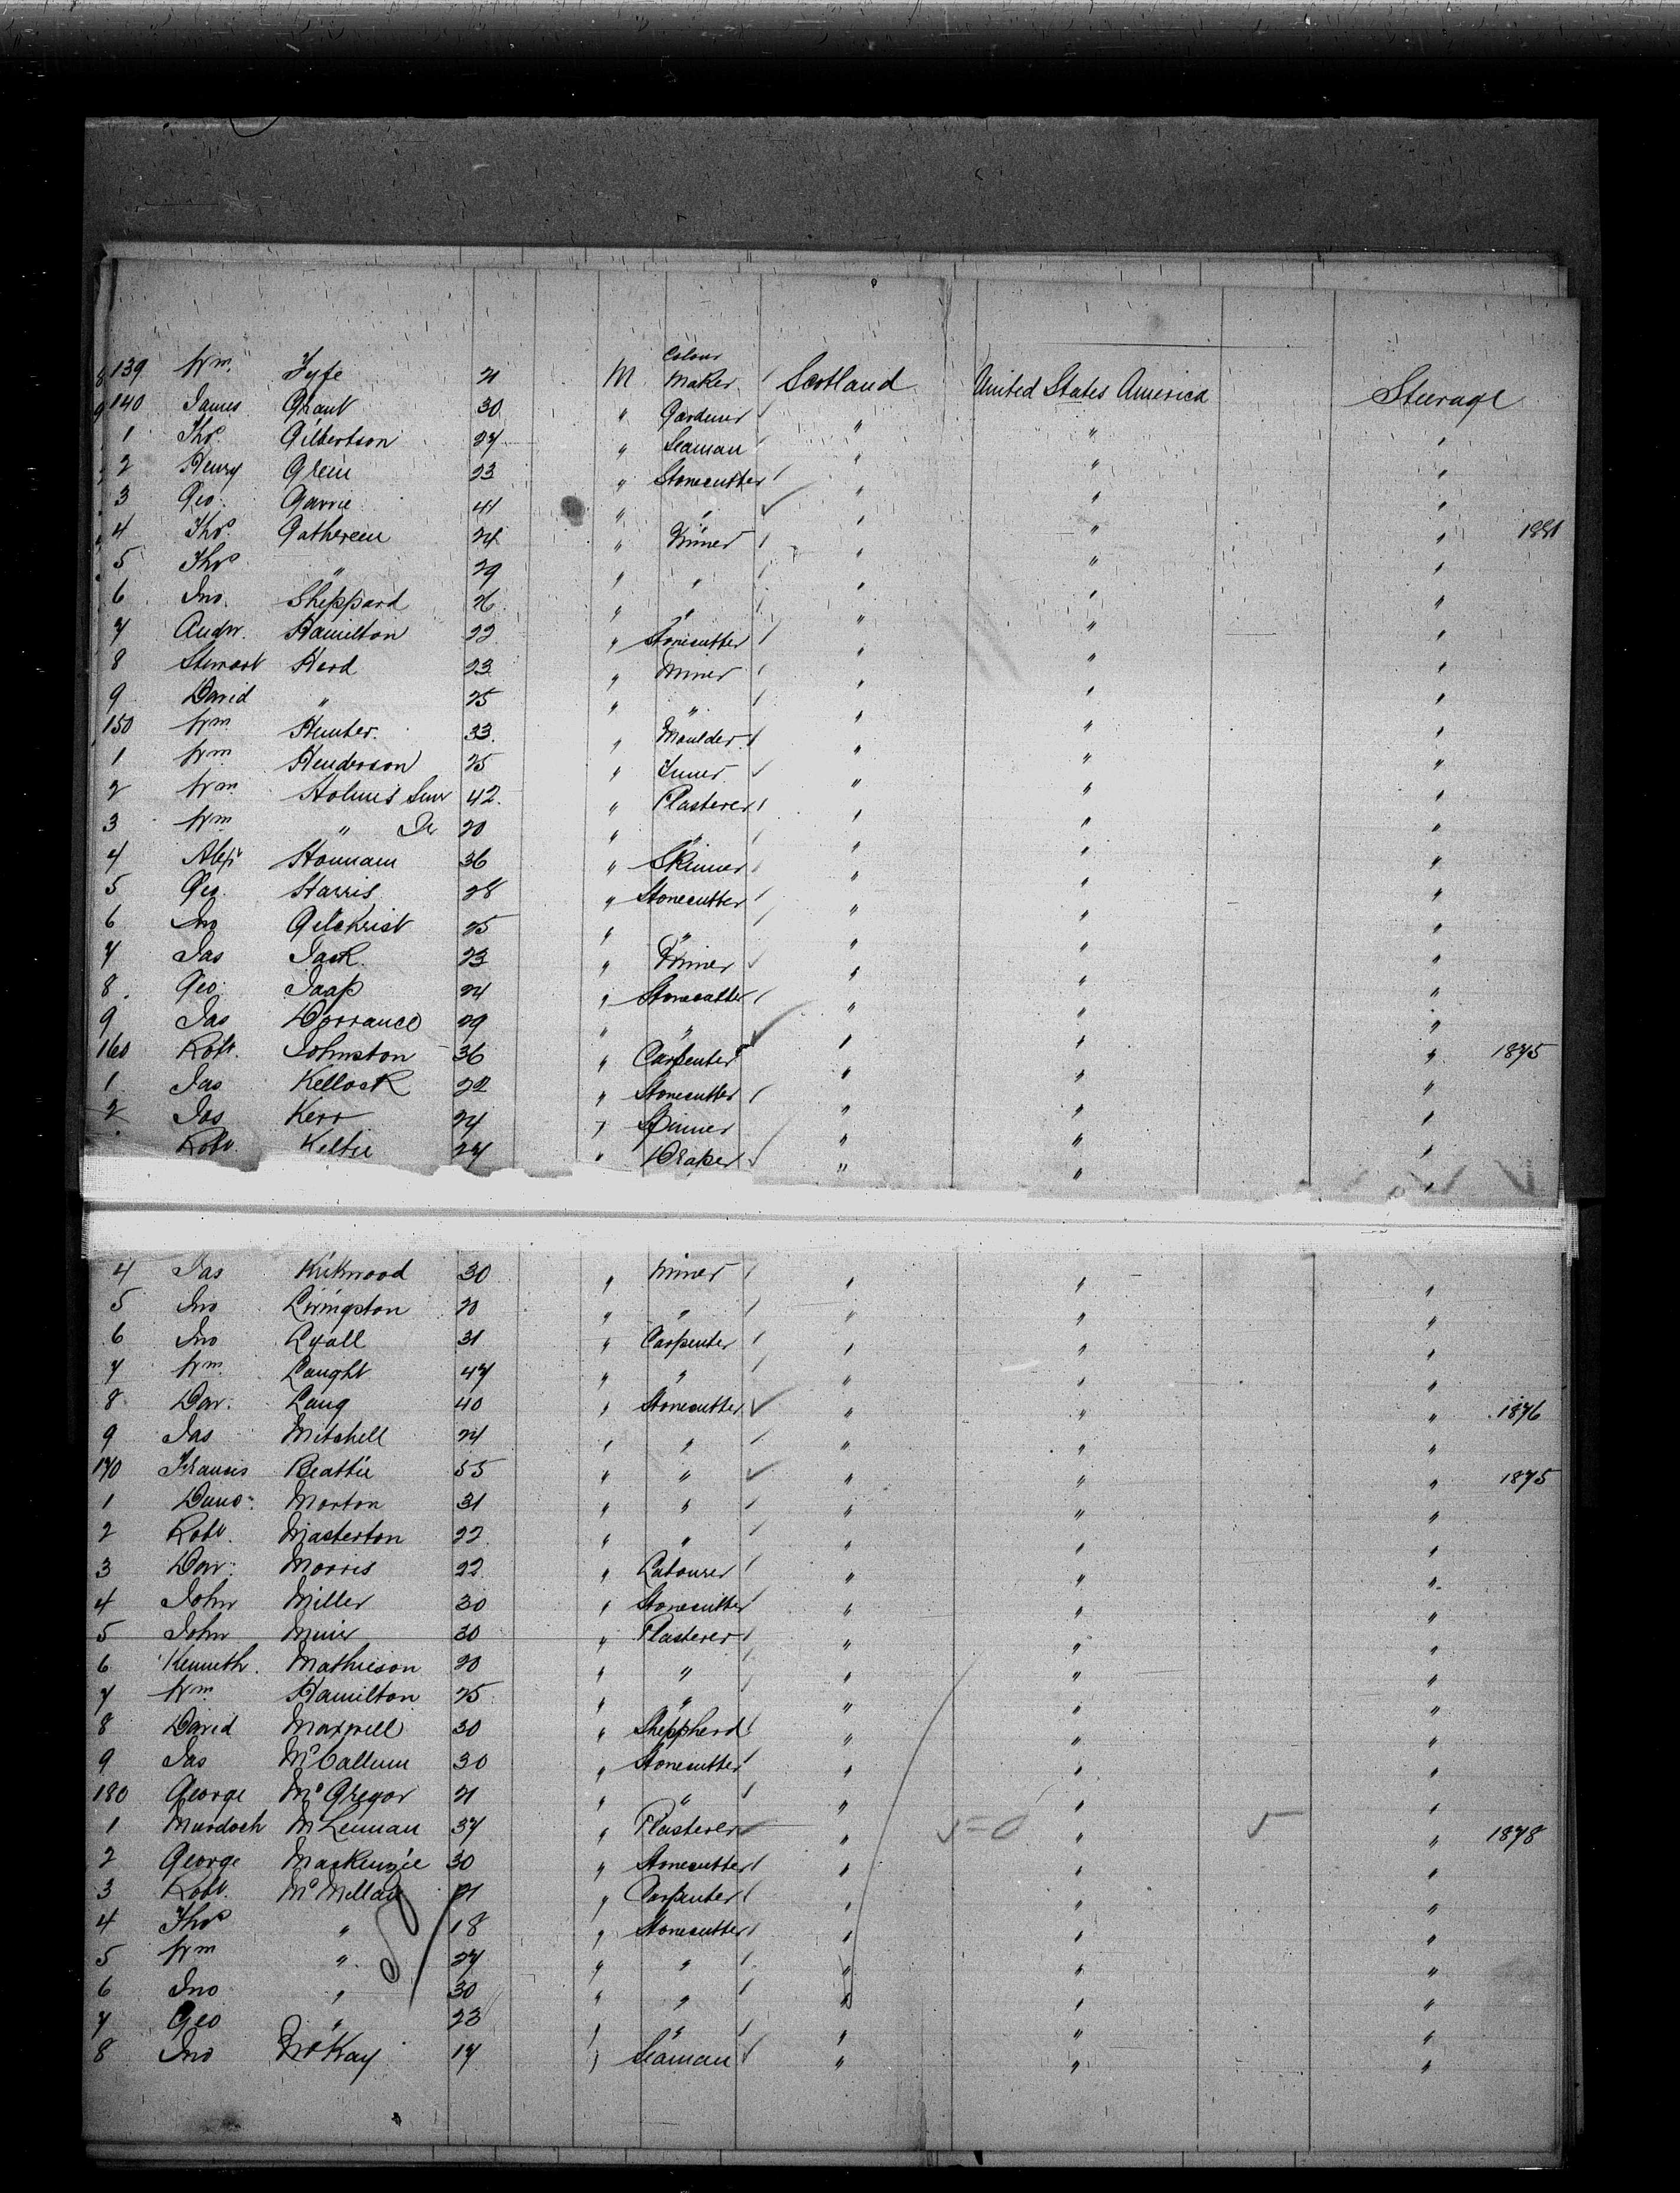 139 Wm. Fyfe 21 M Colour Maker Scotland United States America Steerage
140 James Grant 30 " Gardener " " "
1 Thos. Gilbertson 27 " Seaman " " "
2 Henry Green 23 " Stonecutter " " "
3 Geo. Garrie 41 " " " " " 1881
4 Thos. 24 " Miner " " "
5 Thos " 29 " " " " "
6 Jno. Sheppard 26 " " " " "
7 Andw. Hamilton 22 " Stonecutter " " "
8 Stewart Herd 23 " Miner " " "
9 David " 25 " " " " "
150 Wm Hunter. 33. " Moulder " " "
1 Wm Henderson 25 " " " "
2 Wm Holmes Senr 42. " Plasterer " " "
3 Wm " Jr 20 " " " " "
4 Alexr 36 " Skinner " " "
5 Geo. Harris 28 " Stonecutter " " "
6 Jno Gilchrist 25 " " " " "
7 Jas Jack. 23 " Miner " " "
8. Geo. Jaap 24 " Stonecutter " " "
9 Jas Dorrance 29 " " " " "
160 Robt. Johnston 36 " Carpenter " " " 1875
1. Jas Kellock 22 " Stonecutter " " "
2 Jas Kerr 24 " Spinner " " "
Robt. Keltie 27 " Draper " " "
4 Jas Kirkwood 30 " Miner " " "
5 Jno Livingston 20 " " " " "
6 Jno Lyall 31 " Carpenter " " "
7 Wm Laught 47 " " " " "
8 Dav. Laug 40 " Stonecutter " " " 1876
9 Jas Mitchell 24 " " " " "
170 Francis Beattie 55 " " " " " 1875
1 Morton 31 " " " " "
2 Robt. Masterton 22 " " " " "
3 Dav. Morris 22 " Labourer " " "
4 John Miller 30 " Stonecutter " " "
5 John Muir 30 " Plasterer " " "
6 Kenneth. Mathieson 20 " " " " "
7 Wm Hamilton 25 " " " " "
8 David Maxwell 30 " Sheppherd " " "
9 Jas McCallum 30 " Stonecutter " " "
180 George McGregor 21 " " " " "
1 Murdoch McLennan 37 " Plasterer " " " 1878
2 George Mackenzie 30 " Stonecutter " " "
3 Robt. McMillan 21 " Carpenter " " "
4 Thos " 18 " Stonecutter " " "
5 Wm " 27 " " " " "
6 Jno " 30 " " " " "
7 Geo " 23 " " " " "
8 Jno McKay 17 " Seaman " " "